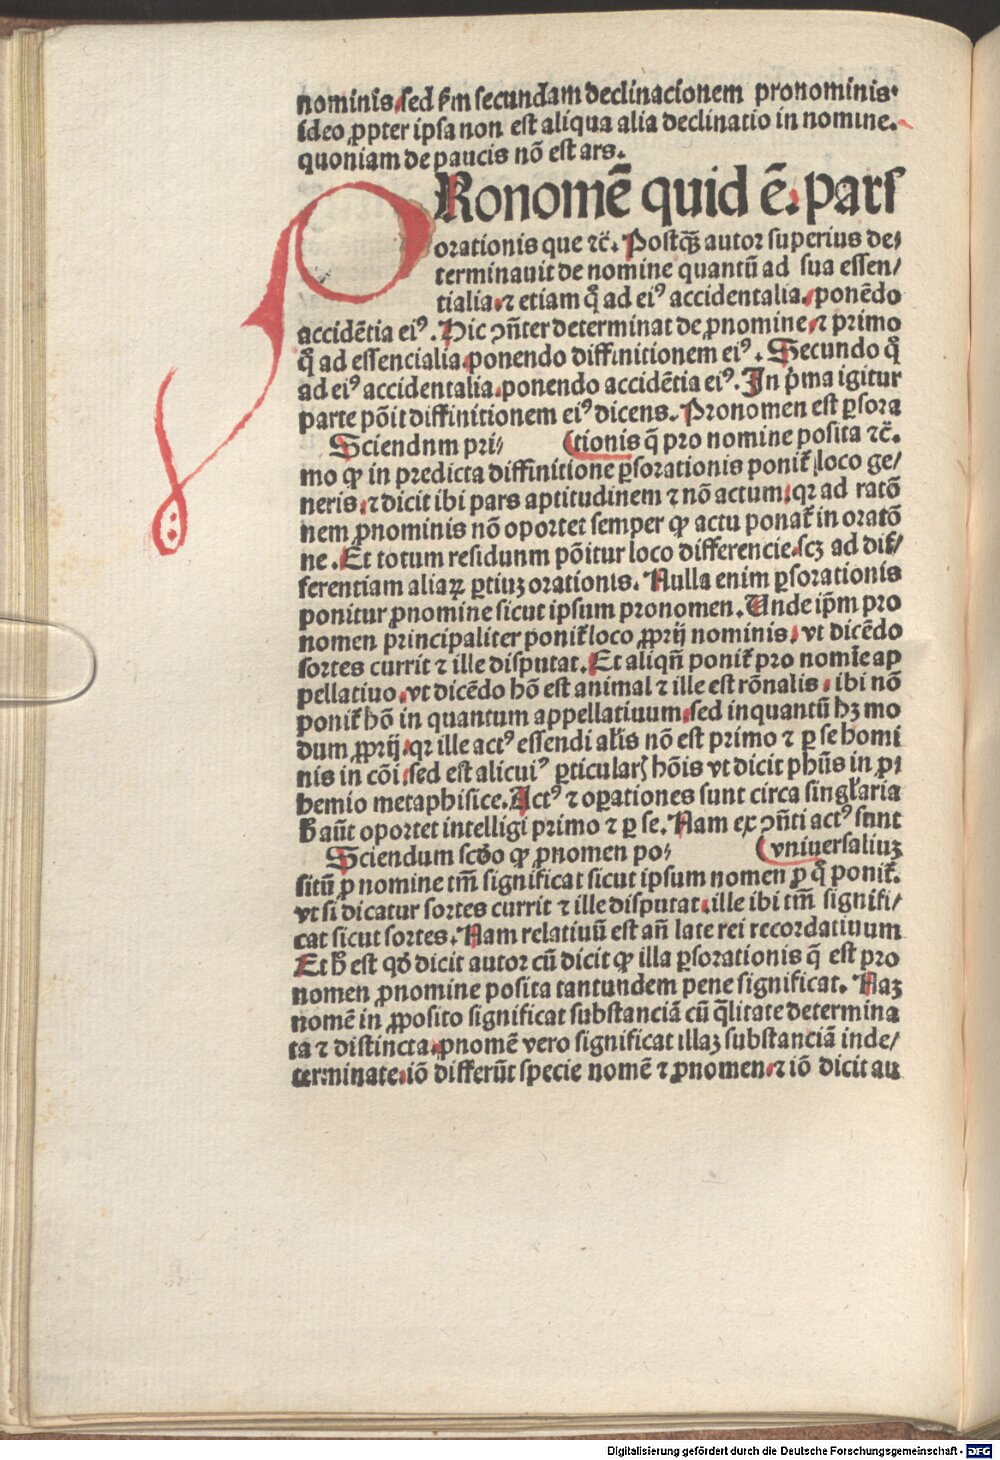 nominis. sed ẜm secundam declinacionem pronominis.
ideo ꝓpter ipsa non est aliqua alia declinatio in nomine.
quoniam de paucis nō est ars.
PRonomē quid ē. pars
orationis que ⁊c̄. Postq̄ꝫ autor superius de⸗
terminauit de nomine quantū ad sua essen/
tialia. ⁊ etiam q̊ ad eiꝰ accidentalia. ponēdo
accidētia eiꝰ. Hic ꝯñter determinat de ꝓnomine. ⁊ primo
q̊ ad essencialia ponendo diffinitionem eiꝰ. Secundo q̊
ad eiꝰ accidentalia. ponendo accidētia eiꝰ. In p̍ma igitur
parte pōit diffinitionem eiꝰ dicens. Pronomen est ꝑsora
Sciendnm pri⸗ (tionis q̄ pro nomine posita ⁊c̄.
mo ꝙ in predicta diffinitione ꝑsorationis ponit᷑ loco ge/
neris. ⁊ dicit ibi pars aptitudinem ⁊ nō actum. qꝛ ad ratō
nem ꝓnominis nō oportet semper ꝙ actu ponat᷑ in oratō
ne. Et totum residunm pōitur loco differencie. scꝫ ad dif/
ferentiam aliaꝝ ꝑtiuꝫ orationis. Nulla enim ꝑsorationis
ponitur ꝓnomine sicut ipsum pronomen. Unde ip̄m pro
nomen principaliter ponit᷑ loco ꝓprij nominis. vt dicēdo
sortes currit ⁊ ille disputat. Et aliqn̄ ponit᷑ pro nomīe ap
pellatiuo. vt dicēdo hō est animal ⁊ ille est rōnalis. ibi nō
ponit᷑ hō in quantum appellatiuum. sed inquantū hꝫ mo
dum ꝓprij. qꝛ ille actꝰ essendi al̄is nō est primo ⁊ ꝑ se homi
nis in cōi. sed est alicuiꝰ ꝑticularꝭ hōis vt dicit ph̄us in ꝓ⸗
hemio metaphisice. Actꝰ ⁊ oꝑationes sunt circa singl̄aria
h̄ aūt oportet intelligi primo ⁊ ꝑ se. Nam ex ꝯñti actꝰ sunt
Sciendum scd̄o ꝙ ꝓnomen po⸗ (vniuersaliuꝫ
sitū ꝓ nomine tm̄ significat sicut ipsum nomen ꝓ q̊ ponit᷑.
vt si dicatur sortes currit ⁊ ille disputat. ille ibi tm̄ signifi/
cat sicut sortes. Nam relatiuū est an̄ late rei recordatiuum
Et h̄ est qd̄ dicit autor cū dicit ꝙ illa ꝑsorationis q̄ est pro
nomen ꝓnomine posita tantundem pene significat. Naꝫ
nomē in ꝓposito significat substanciā cū q̄litate determina
ta ⁊ distincta. ꝓnomē vero significat illaꝫ substanciā inde/
terminate. iō differūt specie nomē ⁊ ꝓnomen. ⁊ iō dicit au
Digitalisierung gefördert durch die Deutsche Forschungsgemeinschaft - DFG